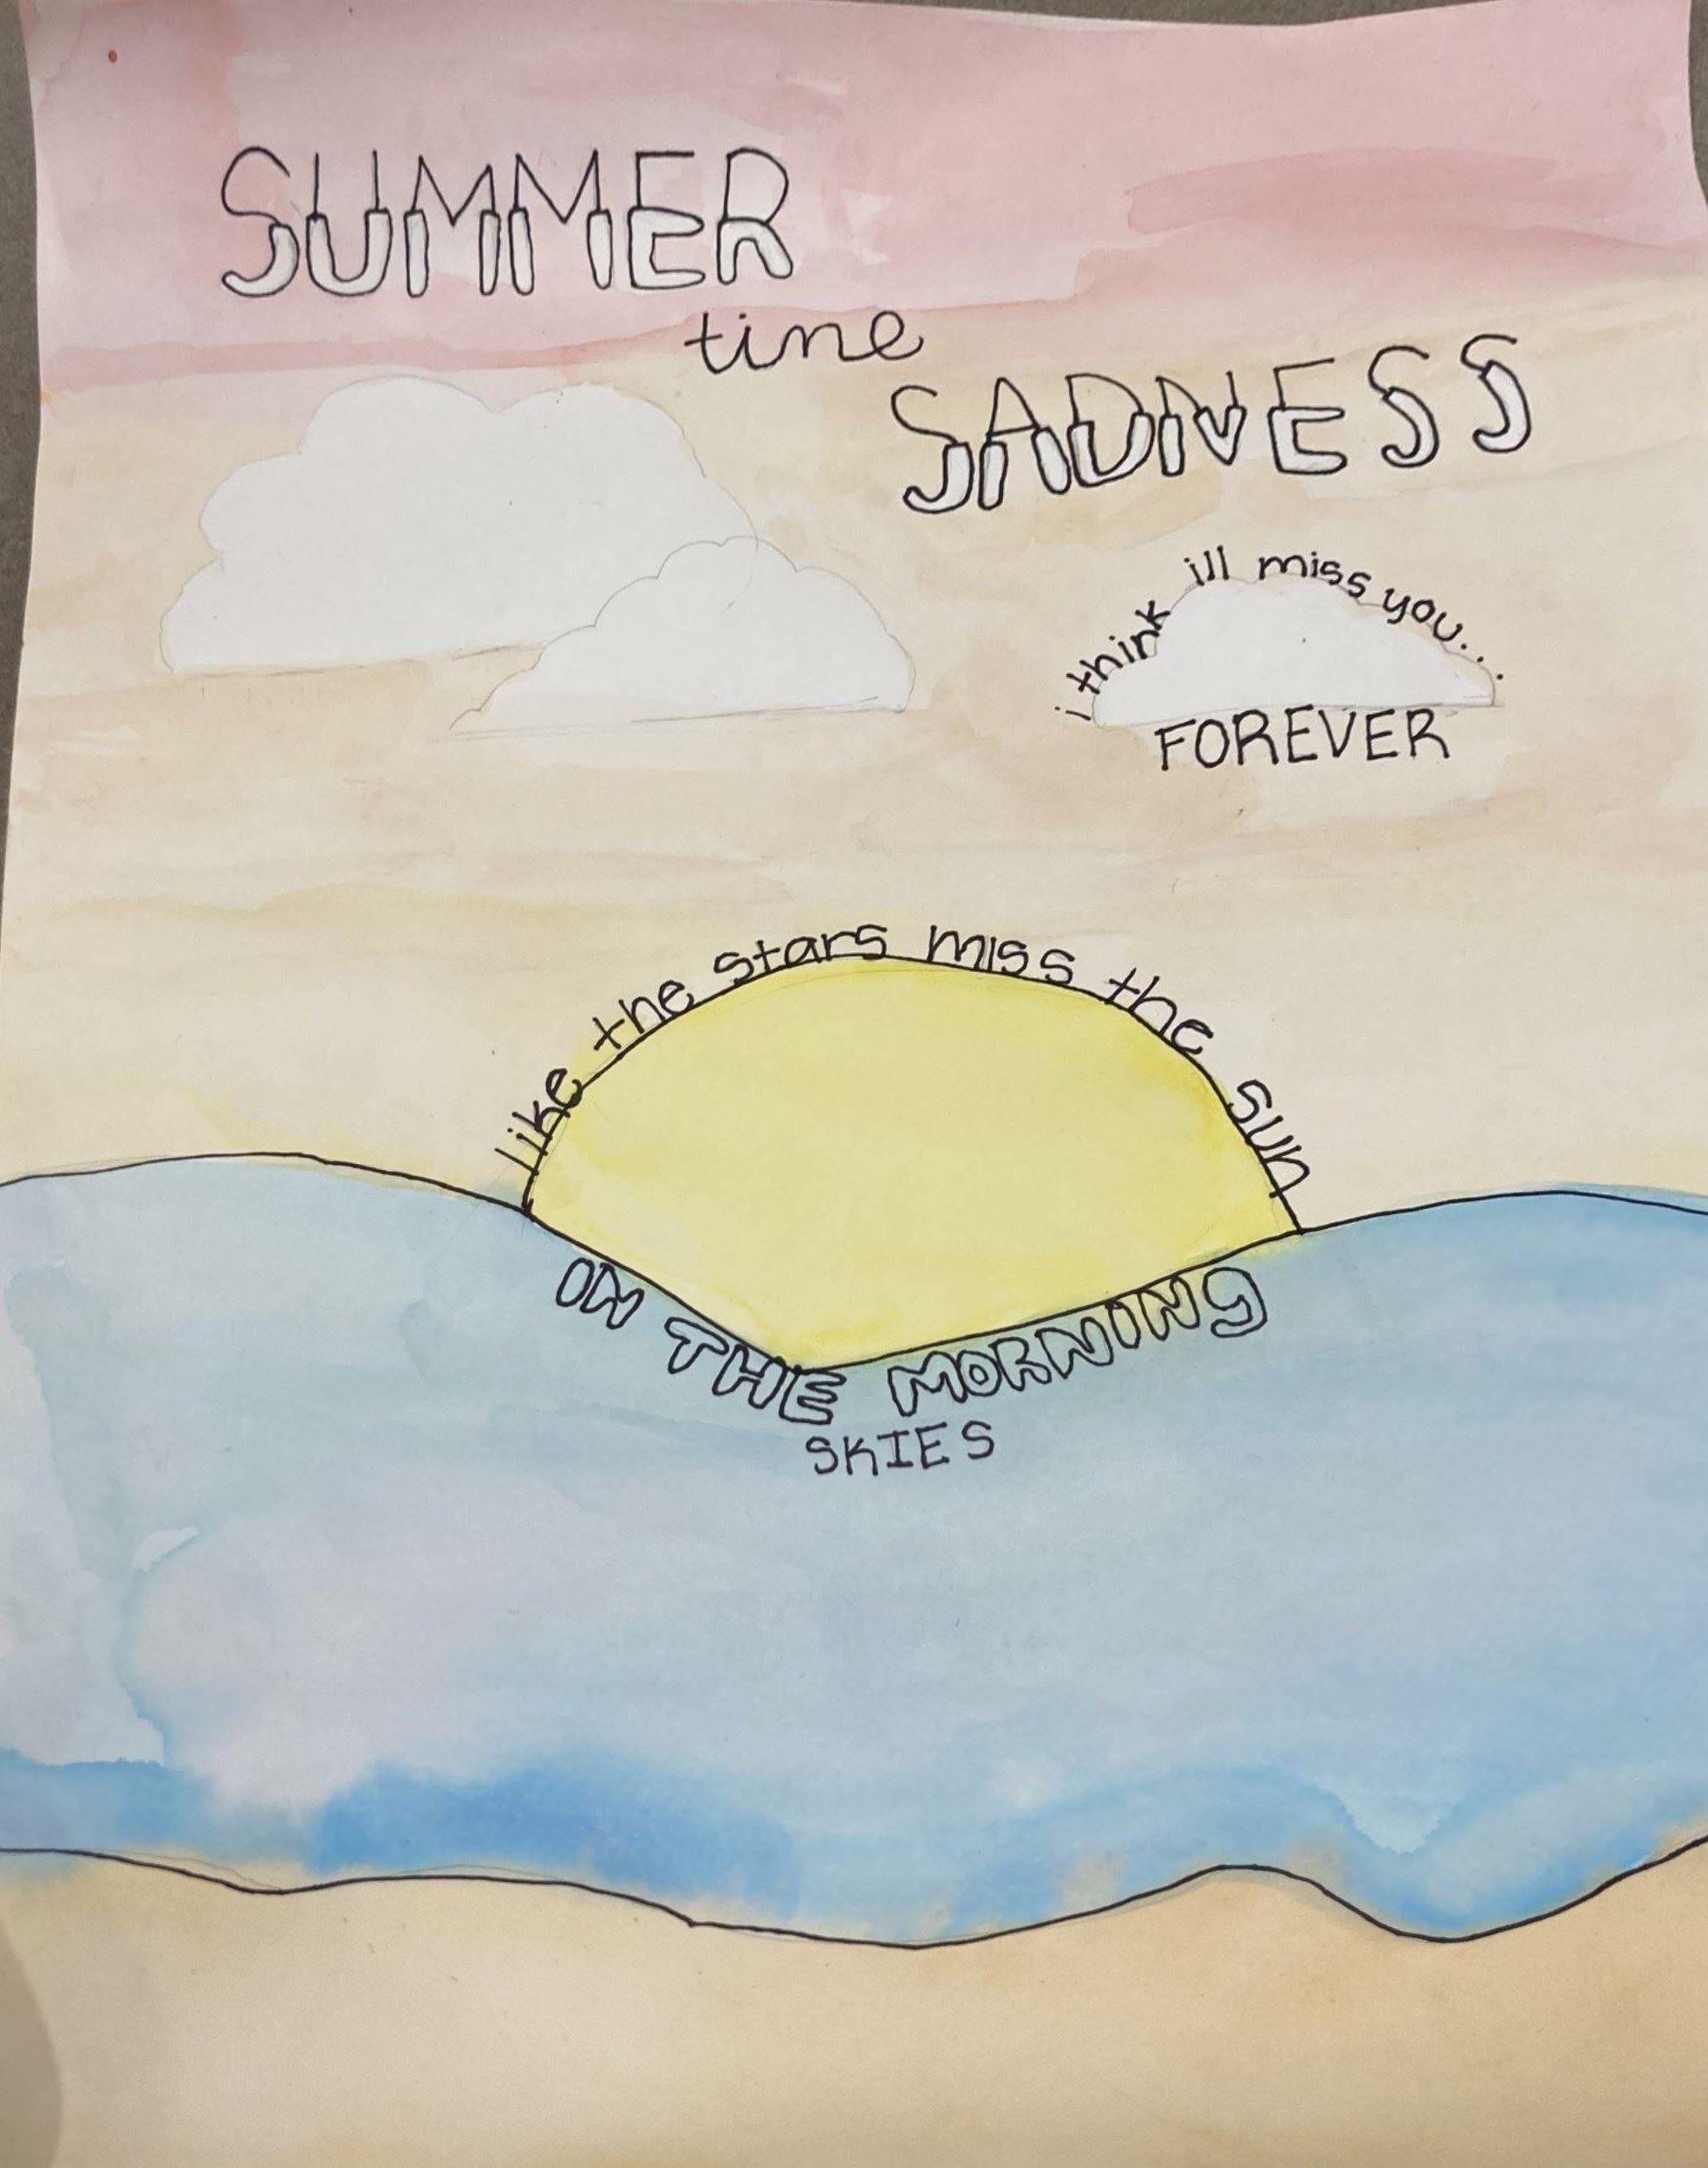 SUMMER
tine
SADNESS
i think ill miss you...
FOREVER
like the stars miss the sun
IN THE MORNING
SKIES